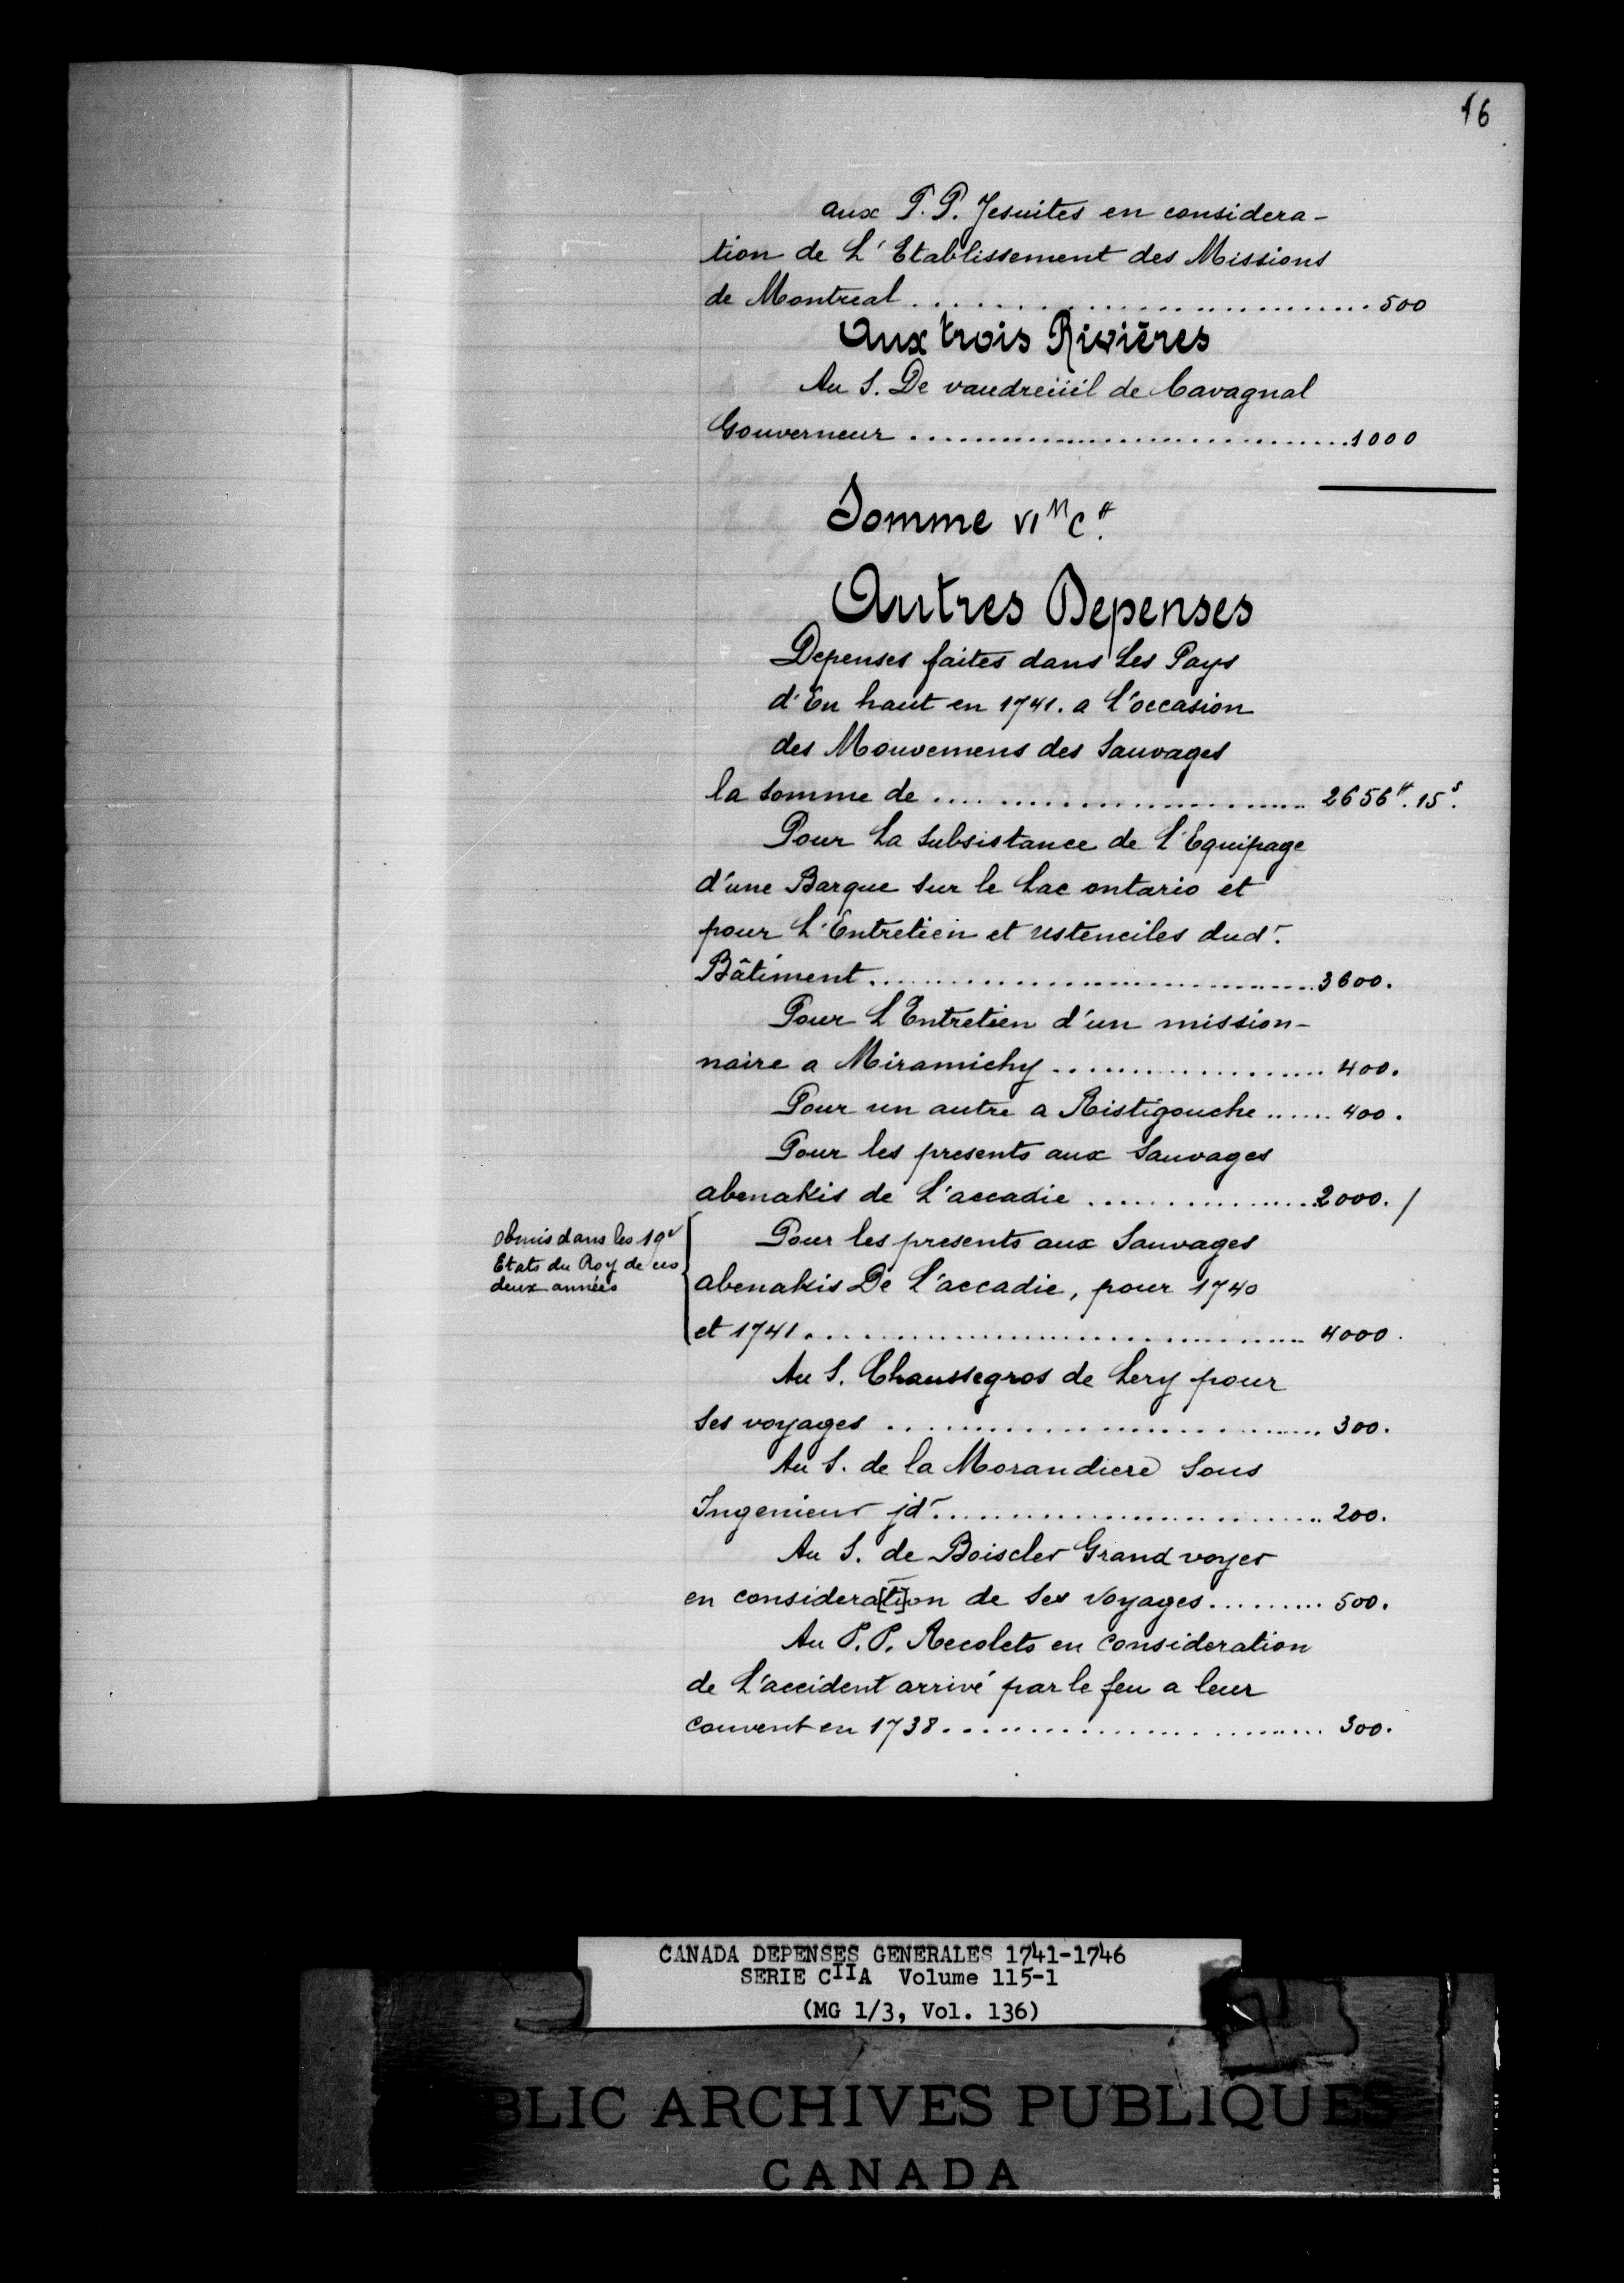 16
aux P. P. Jesuites en considera-
tion de L'Etablissement des Missions
de Montreal ........................ 500
Aux trois Rivières
Au S. De vaudreüil de Cavagnal
Gouverneur ........................ 1000
Somme VI<sup>M</sup> C<sup>tt</sup>.
Autres Depenses
Depenses faites dans Les Pays
d'En haut en 1741. a L'occasion
des Mouvemens des Sauvages
la Somme de ........................ 2656<sup>tt</sup>. 15<sup>s</sup>.
Pour La subsistance de L'Equipage
d'une Barque sur le Lac ontario et
pour L'Entretien et ustenciles dud<sup>t</sup>.
Bâtiment ........................ 3600.
Pour L'Entretien d'un mission-
naire a Miramichy ........................ 400.
Pour un autre a Ristigouche ...... 400.
Pour les presents aux Sauvages
abenakis de L'accadie ................ 2000. /
obmis dans les
Etats du Roy de ces
deux années
Pour les presents aux Sauvages
abenakis De L'accadie, pour 1740
et 1741 ........................ 4000.
Au S. Chaussegros de Lery pour
Ses voyages ........................ 300.
Au S. de la Morandiere Sous
Ingenieur jd<sup>t</sup> ........................ 200.
Au S. de Boiscler Grand voyer
en considera[ti]on de Ses Voyages ......... 500.
Au P. P. Recolets en consideration
de L'accident arrivé par le feu a leur
couvent en 1738 ........................ 300.
CANADA DEPENSES GENERALES 1741-1746
SERIE C<sup>II</sup>A Volume 115-1
(MG 1/3, Vol. 136)
BLIC ARCHIVES PUBLIQUES
CANADA